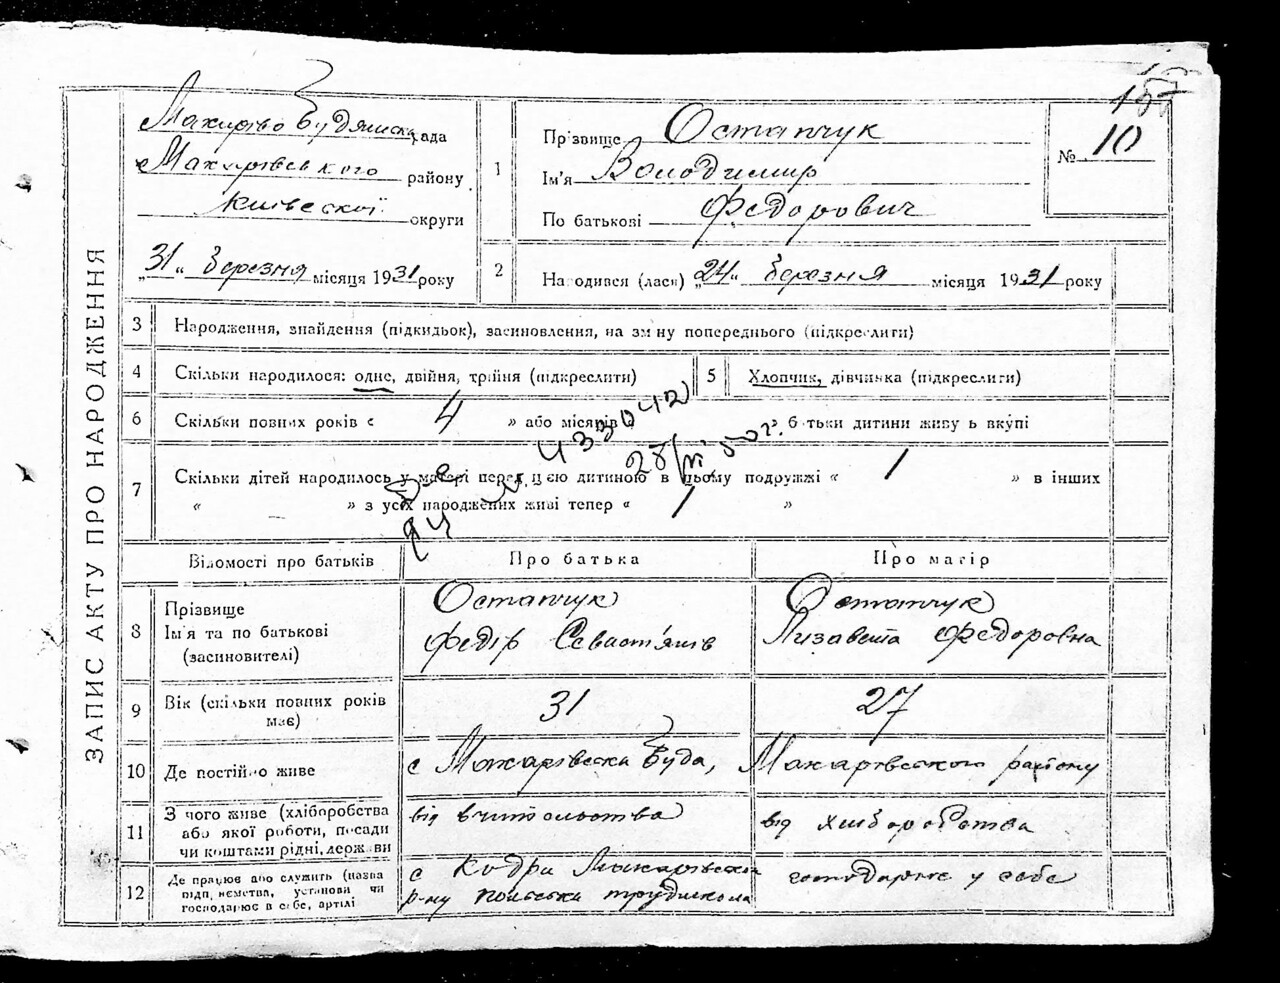 157
ЗАПИС АКТУ ПРО НАРОДЖЕННЯ
Макарівсько Будянська рада
Макарівського району
Київської округи
„31“ березня місяця 1931 року
1
Прізвище Остапчук
Ім'я Володимир
По батькові Федорович
№ 10
2
Народився (лась) „24“ березня місяця 1931 року
3 Народження, знайдення (підкидьок), засиновлення, на зміну попереднього (підкреслити)
4 Скільки народилося: одне, двійня, трійня (підкреслити)
5 Хлопчик, дівчинка (підкреслити)
6 Скільки повних років « 4 » або місяців батьки дитини живуть вкупі
7
Скільки дітей народилось у матері перед цією дитиною в цьому подружжі « 1 » в інших
« » з усіх народжених живі тепер « 1 »
433042
Відомості про батьків Про батька Про матір
8
Прізвище
Ім'я та по батькові
(засиновителі)
Остапчук
Федір Севаст'янів
Остапчук
Лизавета Федоровна
9
Вік (скільки повних років
має)
31
27
10 Де постійно живе с Макарівська Буда, Макарівського району
11
З чого живе (хліборобства
або якої роботи, посади
чи коштами рідні, держави
від вчительства
від хліборобства
12
Де працює або служить (назва
підприємства, установи чи
господарює в себе, артілі
с Кодра Макарівськ
р-ну польська трудшкола
господарює у себе